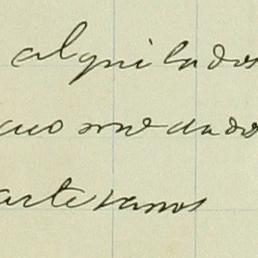 alquilados
acomodados
artesanos